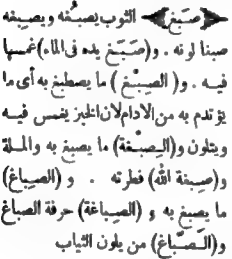 ﴿صَبَغَ﴾ الثوب يصبُغه ويصبِغه
صبغا لونه . و(صَبَغَ) يده فى الماء) غمسها
فيه . و( الصِبْغُ ) ما يصطبغ به أى ما
يؤتدم به من الادام لان الخبز يغمس فيه
ويتلون و(الصِبْغَة) ما يصبغ به والملة
و(صِبغة الله) فطرته . و (الصِباغ)
ما يصبغ به و (الصِباغة) حرفة الصباغ
و(الصَبَّاغ) من يلون الثياب